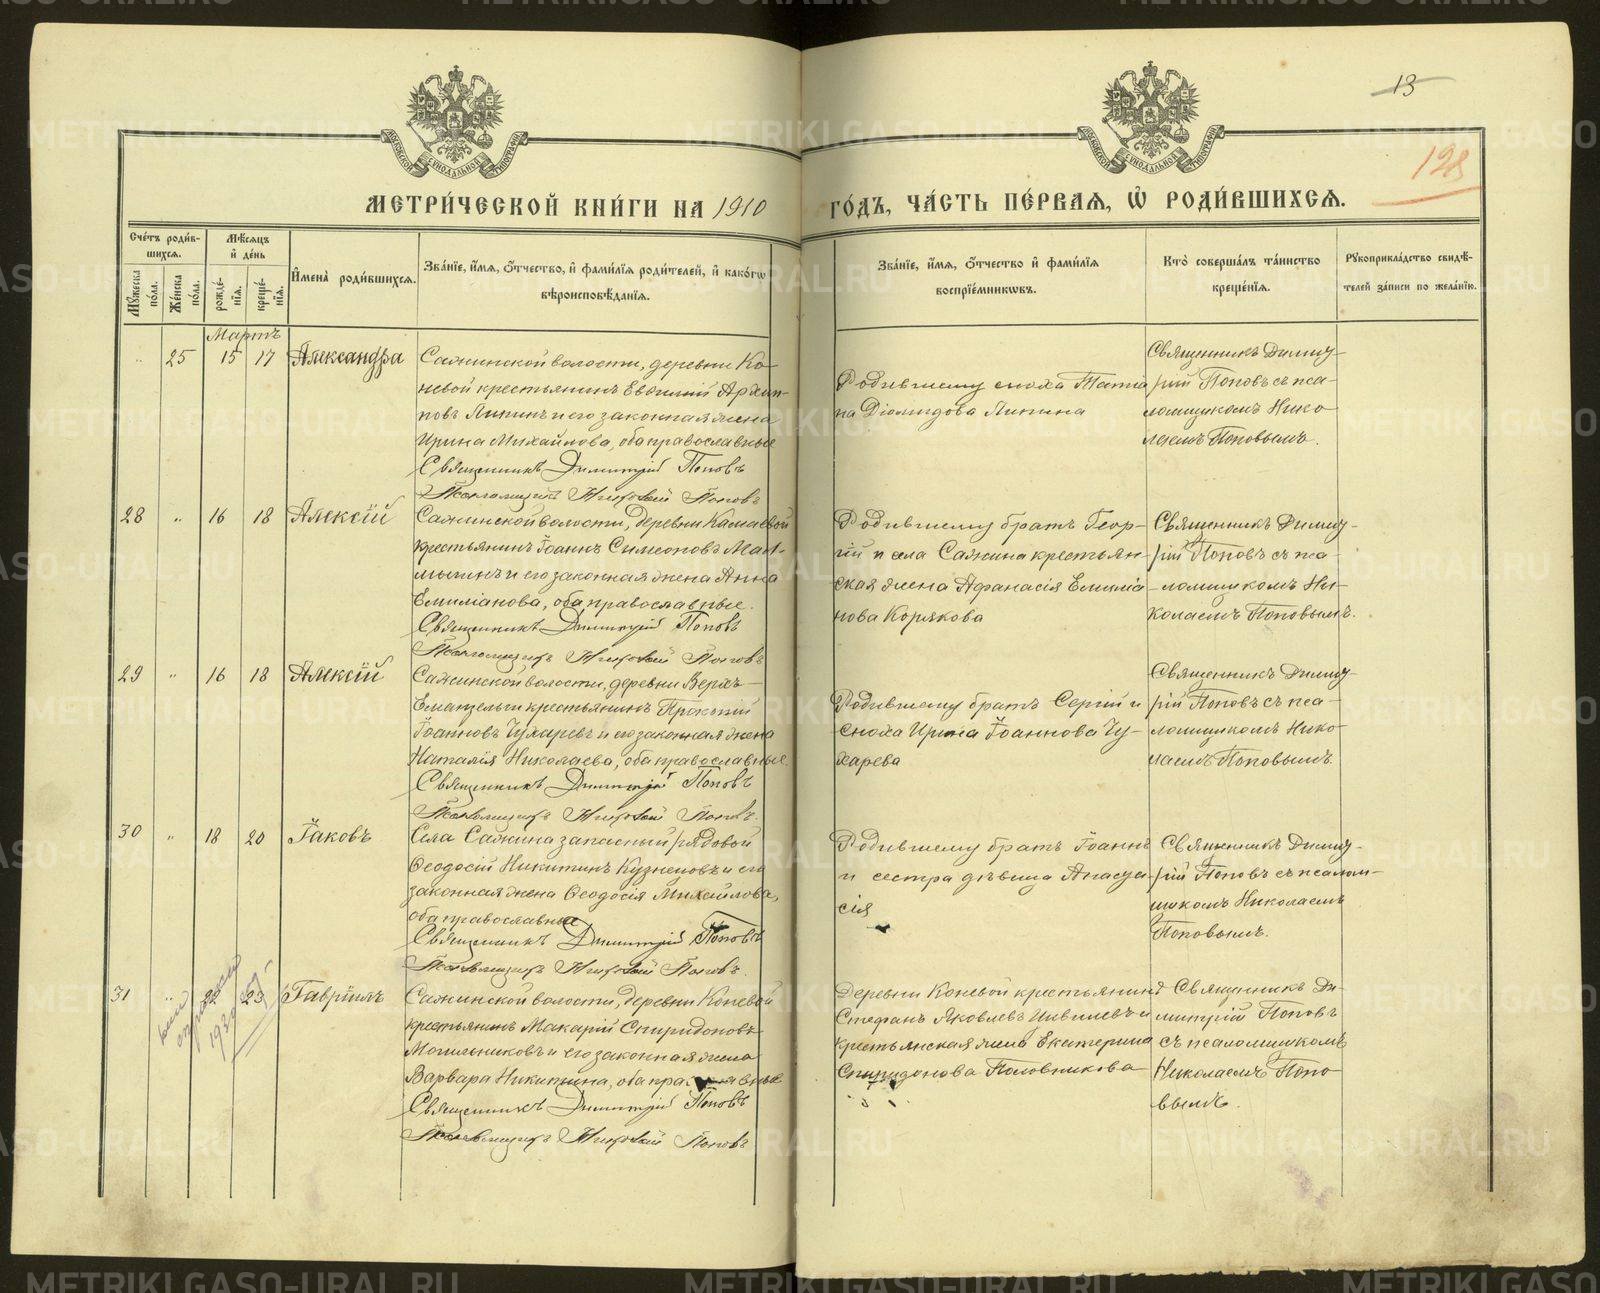 13
128
МЕТРИ́ЧЕСКОЙ КНИ́ГИ НА 1910
ГО́ДЪ, ЧА́СТЬ ПЕ́РВАѦ, Ѡ҆ РОДИ́ВШИХСѦ.
Сче́тъ роди́в-
шихсѧ.
Мꙋ́жеска по́ла.
Же́нска по́ла.
Мѣ́сяцъ
и҆ де́нь
рожде́-
нїѧ.
креще́-
нїѧ.
И҆мена̀ роди́вшихсѧ.
Зва́нїе, и҆́мѧ, ѻ҆́тчество, и҆ фами́лїѧ роди́телей, и҆ како́гѡ
вѣроисповѣ́данїѧ.
Зва́нїе, и҆́мѧ, ѻ҆́тчество и҆ фами́лїѧ
воспрїе́мникѡвъ.
Кто̀ соверша́лъ та́инство
креще́нїѧ.
Рꙋкоприкла́дство свидѣ́-
телей за́писи по жела́нїю.
Мартъ
" 25 15 17 Александра
Сажинской волости, деревни Ко-
невой крестьянинъ Евфимій Архип-
повъ Липинъ и его законная жена
Ирина Михайлова, оба православные
Священникъ Димитрій Поповъ
Псаломщикъ Николай Поповъ
Родившему сноха Татіа
на Діомидова Липина
Священникъ Димит-
рій Поповъ съ пса-
ломщикомъ Нико
лаемъ Поповымъ.
28 " 16 18 Алексій
Сажинской волости, деревни Камаевой
крестьянинъ Іоаннъ Симеоновъ
и его законная жена Анна
Емиліанова, оба православные.
Священникъ Димитрій Поповъ
Псаломщикъ Николай Поповъ
Родившему братъ Геор-
гій и села Сажина крестьян-
ская жена Афанасія Емиліа
нова Корякова
Священникъ Димит-
рій Поповъ съ пса-
ломщикомъ Ни-
колаемъ Поповымъ.
29 " 16 18 Алексій
Сажинской волости, деревни Верхъ-
крестьянинъ Прокопій
Іоанновъ Чухаревъ и его законная жена
Наталія Николаева, оба православные.
Священникъ Димитрій Поповъ
Псаломщикъ Николай Поповъ.
Родившему братъ Сергій и
сноха Ирина Іоаннова Чу-
харева
Священникъ Димит-
рій Поповъ съ пса-
ломщикомъ Нико-
лаемъ Поповымъ.
30 " 18 20 Іаковъ
Села Сажина запасный рядовой
Ѳеодосій Никитинъ Кузнецовъ и его
законная жена Ѳеодосія Михайлова,
оба православные
Священникъ Димитрій Поповъ
Псаломщикъ Николай Поповъ.
Родившему братъ Іоаннъ
и сестра дѣвица Анаста
сія
Священникъ Димит-
рій Поповъ съ псалом-
щикомъ Николаемъ
Поповымъ.
31 " 22 23 Гавріилъ
1930
Сажинской волости, деревни Коневой
крестьянинъ Макарій Спиридоновъ
Могильниковъ и его законная жена
Варвара Никитина, оба православные
Священникъ Димитрій Поповъ
Псаломщикъ Николай Поповъ
Деревни Коневой крестьянинъ
Стефанъ Яковлевъ и
крестьянская жена Екатерина
Спиридонова Половникова
Священникъ Ди-
митрій Поповъ
съ псаломщикомъ
Николаемъ Попо
вымъ.
METRIKI.GASO-URAL.RU